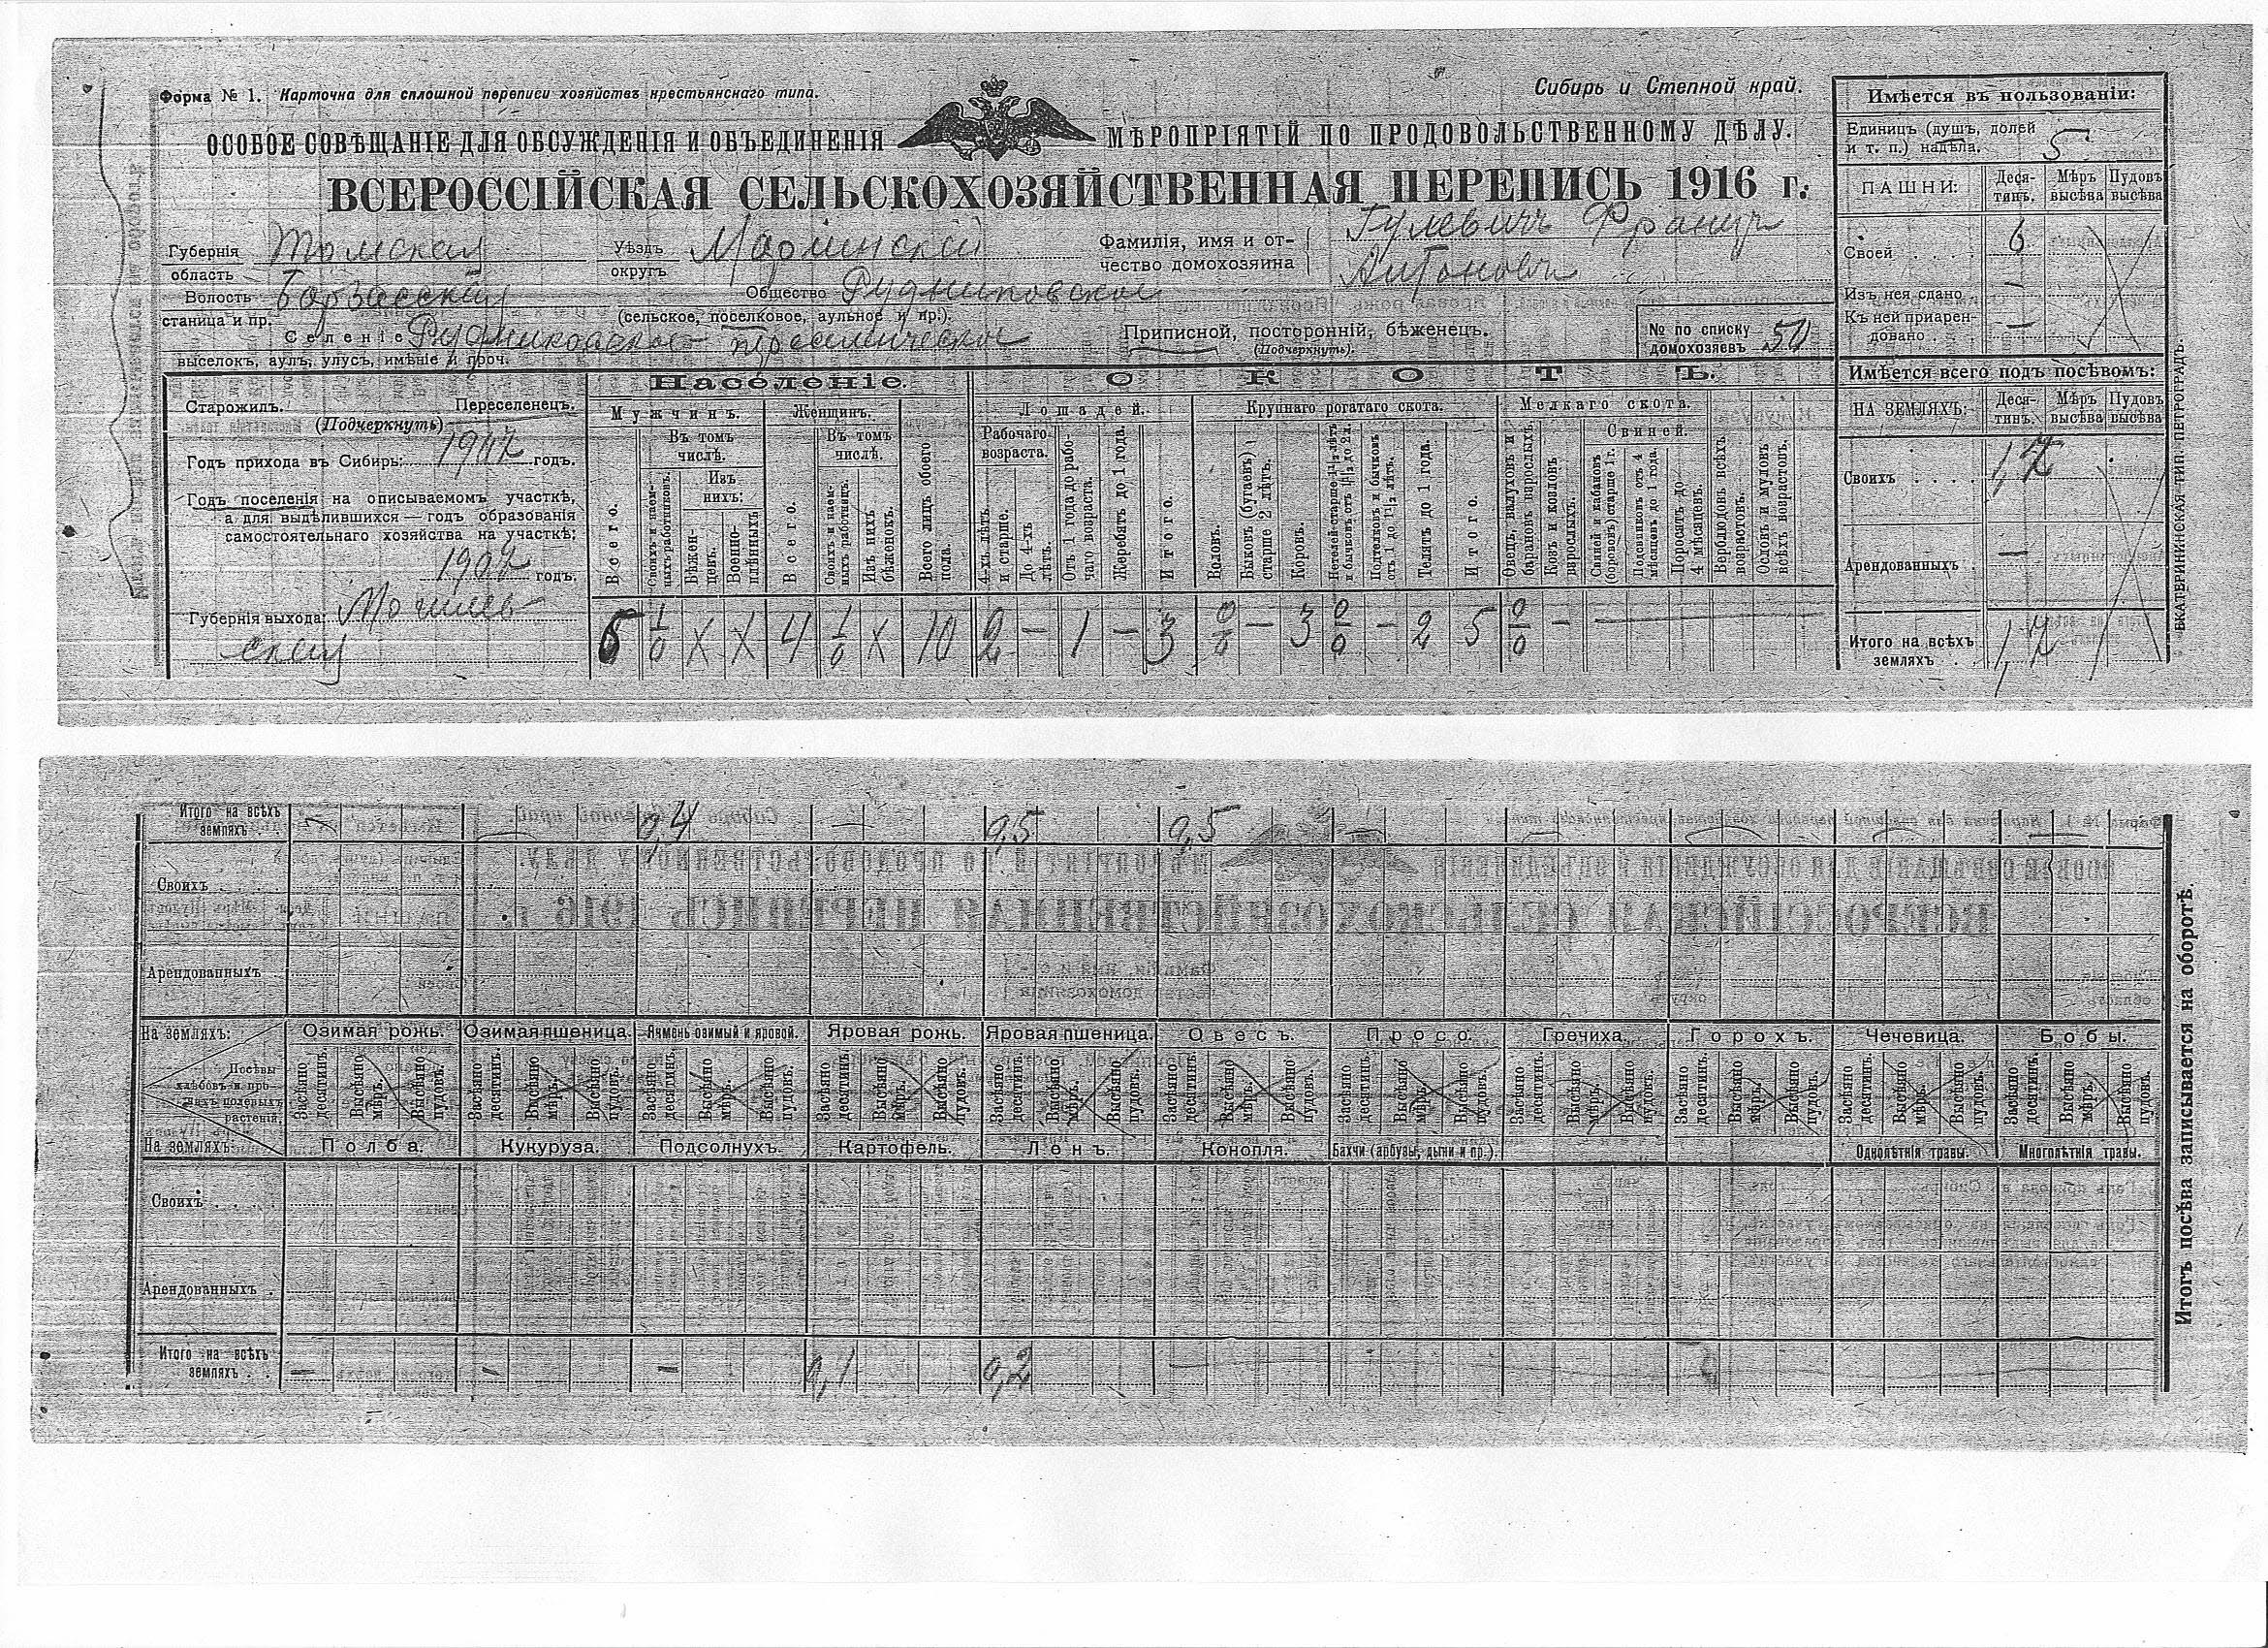 Форма № 1. Карточка для сплошной переписи хозяйствъ крестьянскаго типа.
Сибирь и Степной край.
ОСОБОЕ СОВѢЩАНІЕ ДЛЯ ОБСУЖДЕНІЯ И ОБЪЕДИНЕНІЯ МѢРОПРІЯТІЙ ПО ПРОДОВОЛЬСТВЕННОМУ ДѢЛУ.
ВСЕРОССІЙСКАЯ СЕЛЬСКОХОЗЯЙСТВЕННАЯ ПЕРЕПИСЬ 1916 г.
Губернія Томская Уѣздъ Маріинскій Фамилія, имя и от- Гулевичъ Францъ
область округъ чество домохозяина Антоновъ
Волость Барзасская Общество Рудниковское
станица и пр. (сельское, поселковое, аульное и пр.).
Селеніе Рудниковское Приписной, посторонній, бѣженецъ.
(Подчеркнуть).
№ по списку
домохозяевъ 50
выселокъ, аулъ, улусъ, имѣніе и проч.
Старожилъ. Переселенецъ.
(Подчеркнуть)
Годъ прихода въ Сибирь: 1907 годъ.
Годъ поселенія на описываемомъ участкѣ,
а для выдѣлившихся — годъ образованія
самостоятельнаго хозяйства на участкѣ:
1907 годъ.
Губернія выхода: Могилев-
ская
Населеніе.
Мужчинъ. Женщинъ.
Въ томъ числѣ. Въ томъ числѣ.
Изъ нихъ:
Всего.
Своихъ и наем-
ныхъ работниковъ.
Бѣжен-
цевъ.
Военно-
плѣнныхъ
Всего.
Своихъ и наем-
ныхъ работницъ.
Изъ нихъ
бѣженокъ.
Всего лицъ обоего
пола.
6 1/0 X X 4 1/0 X 10
СКОТЪ.
Лошадей. Крупнаго рогатаго скота. Мелкаго скота.
Рабочаго
возраста.
4-хъ лѣтъ
и старше.
До 4-хъ
лѣтъ.
Отъ 1 года до рабо-
чаго возраста.
Жеребятъ до 1 года.
Итого.
Воловъ.
Быковъ (бугаевъ)
старше 2 лѣтъ.
Коровъ.
Нетелей старше 1½ лѣтъ
и бычковъ отъ 1½ до 2 л.
Подтелокъ и бычковъ
отъ 1 до 1½ лѣтъ.
Телятъ до 1 года.
Итого.
Овецъ, валуховъ и
барановъ взрослыхъ.
Козъ и козловъ
взрослыхъ.
Свиней.
Свиней и кабановъ
(борововъ) старше 1 г.
Подсвинковъ отъ 4
мѣсяцевъ до 1 года.
Поросятъ до
4 мѣсяцевъ.
Верблюдовъ всѣхъ
возрастовъ.
Ословъ и муловъ
всѣхъ возрастовъ.
2 — 1 — 3 0/0 — 3 0/0 — 2 5 0/0 —
Имѣется въ пользованіи:
Единицъ (душъ, долей
и т. п.) надѣла. 5
ПАШНИ: Деся-
тинъ. Мѣръ
высѣва Пудовъ
высѣва
Своей 6
Изъ нея сдано —
Къ ней приарен-
довано —
Имѣется всего подъ посѣвомъ:
НА ЗЕМЛЯХЪ: Деся-
тинъ. Мѣръ
высѣва Пудовъ
высѣва
Своихъ 1,7
Арендованныхъ —
Итого на всѣхъ
земляхъ 1,7
ЕКАТЕРИНИНСКАЯ ТИП. ПЕТРОГРАДЪ.
Итого на всѣхъ
земляхъ — — 0,4 — 0,5 0,5 — — — — —
Своихъ
Арендованныхъ
На земляхъ: Озимая рожь. Озимая пшеница. Ячмень озимый и яровой. Яровая рожь. Яровая пшеница. Овесъ. Просо. Гречиха. Горохъ. Чечевица. Бобы.
Посѣвы
хлѣбовъ и про-
чихъ полевыхъ
растеній.
Засѣяно десятинъ. Высѣяно мѣръ. Высѣяно пудовъ.
На земляхъ: Полба. Кукуруза. Подсолнухъ. Картофель. Ленъ. Конопля. Бахчи (арбузы, дыни и пр.). Однолѣтнія травы. Многолѣтнія травы.
Своихъ
Арендованныхъ
Итого на всѣхъ
земляхъ — — — 0,1 0,2 —
Итогъ посѣва записывается на оборотѣ.